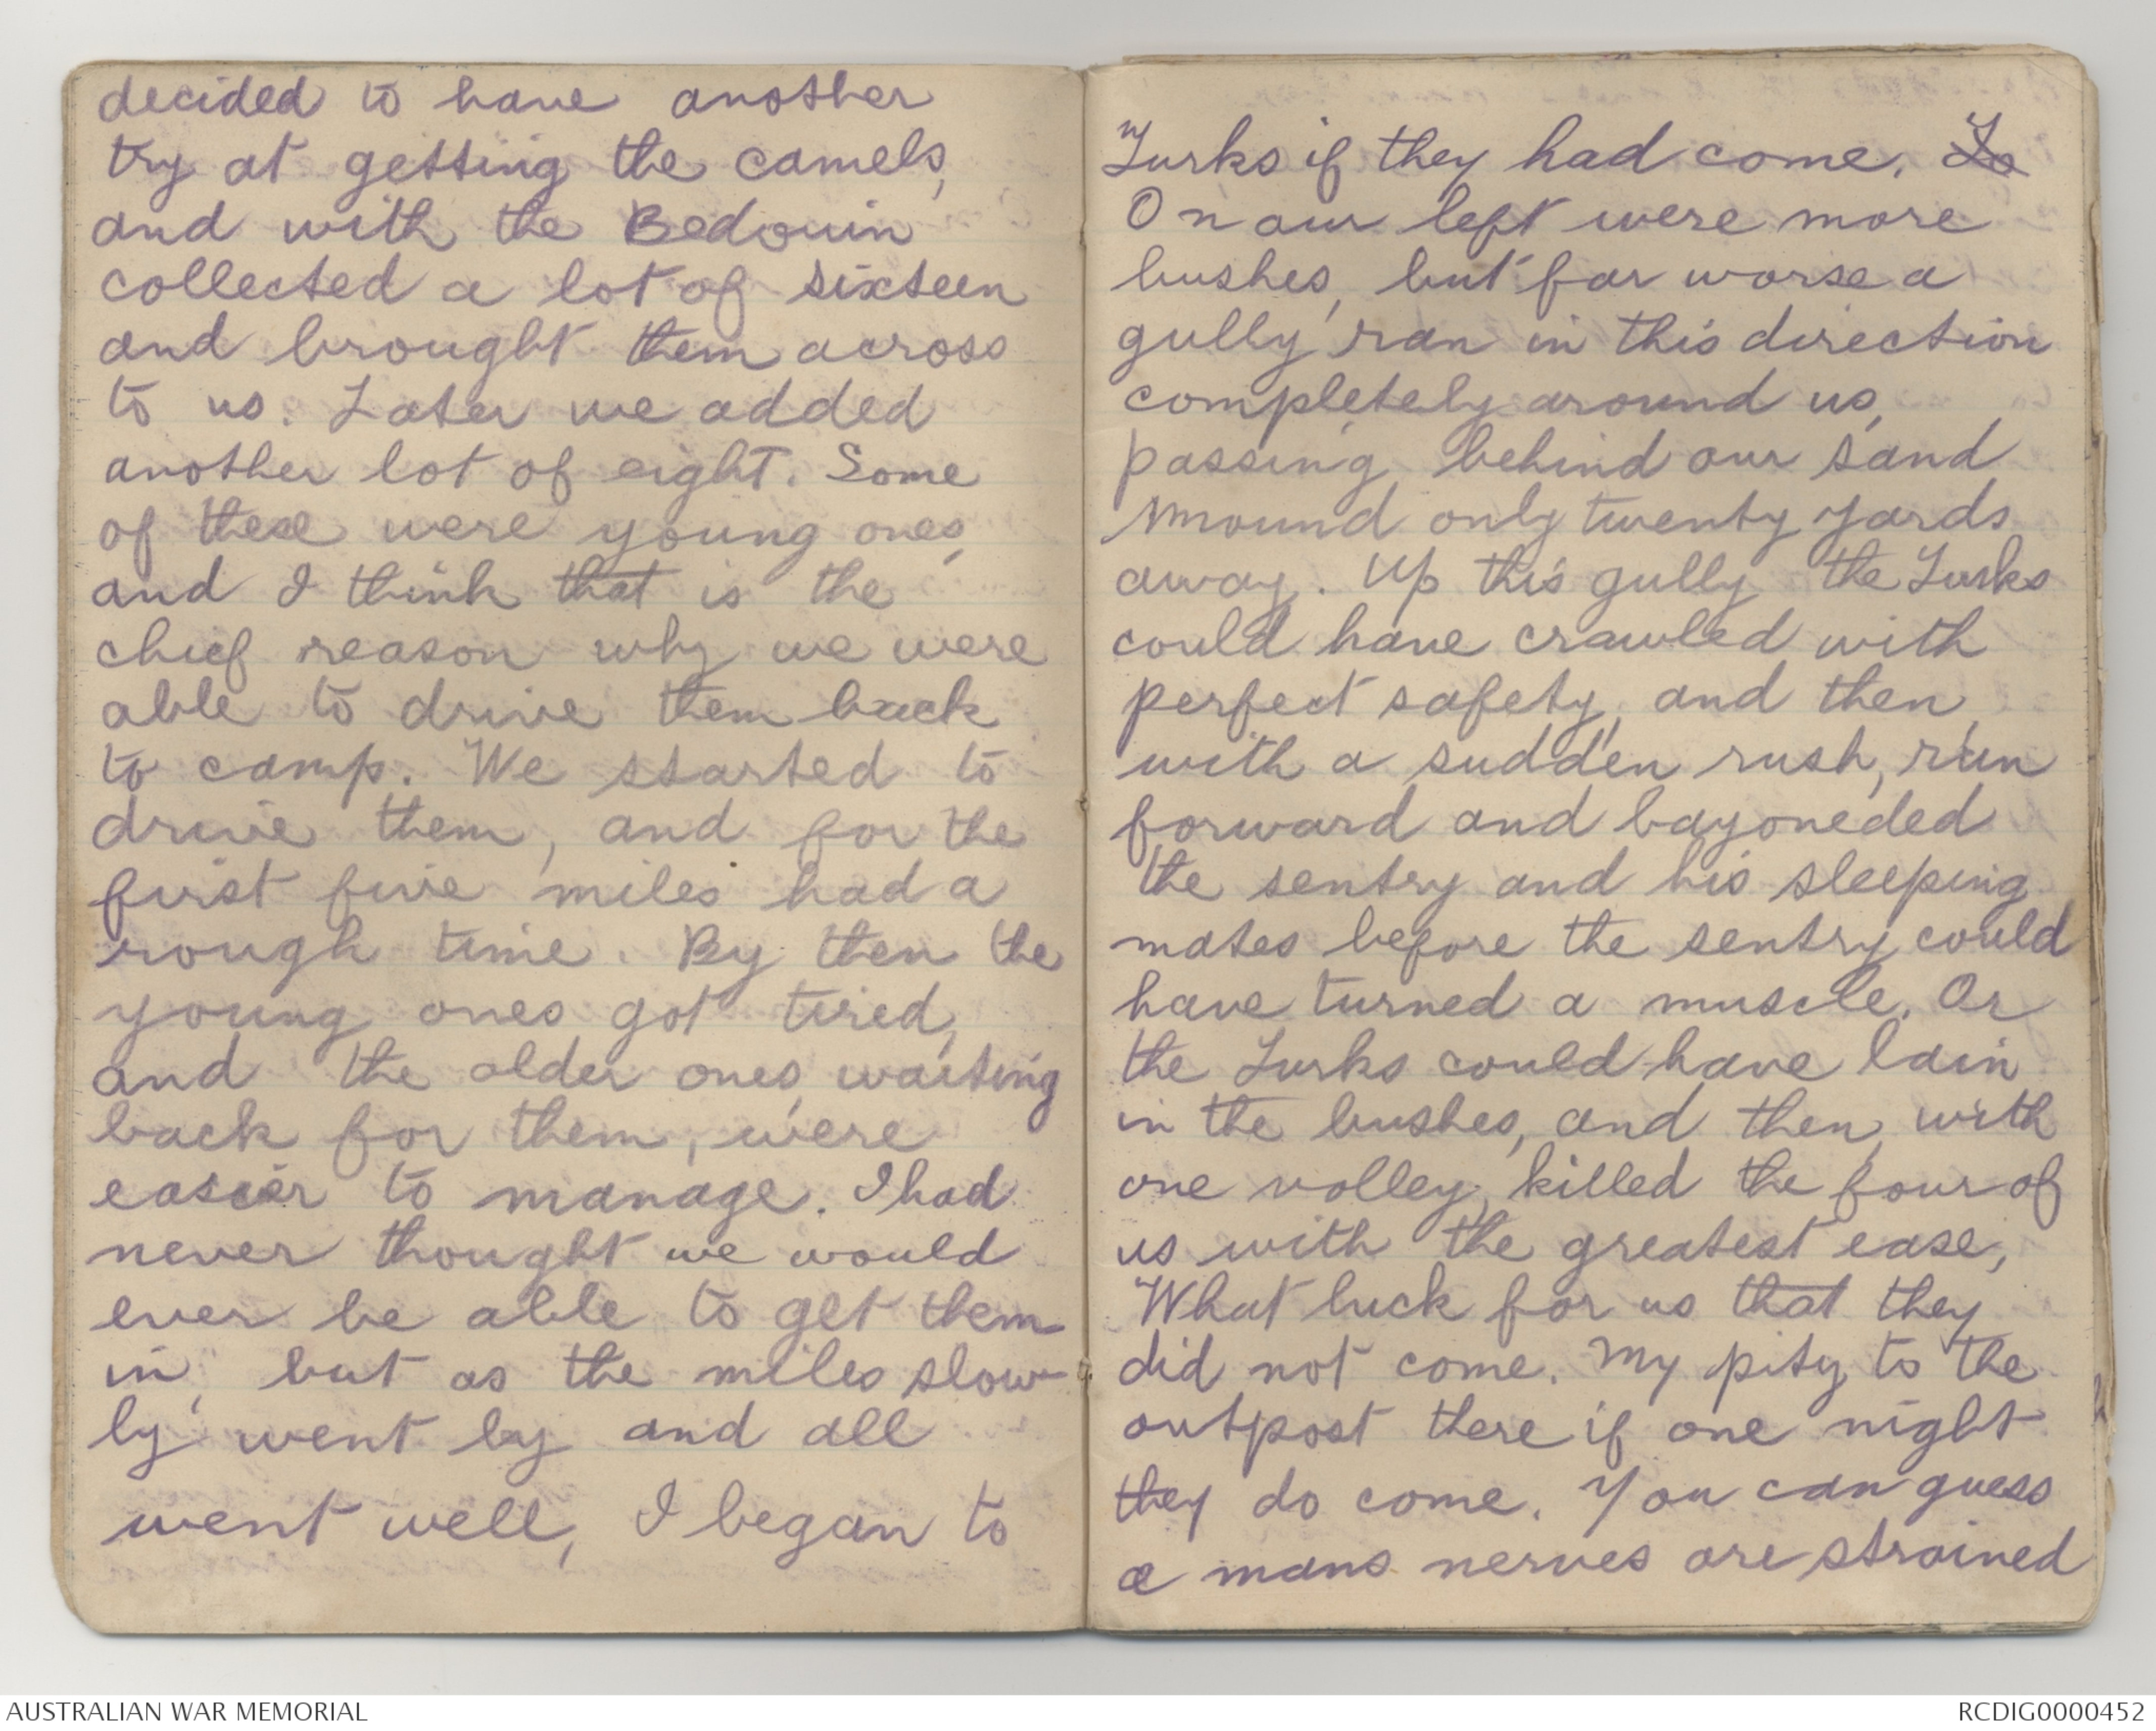 decided to have another
try at getting the camels,
and with the Bedouin
collected a lot of sixteen
and brought them across
to us. Later we added
another lot of eight. Some
of these were young ones,
and I think that is the
chief reason why we were
able to drive them back
to camp. We started to
drive them, and for the
first five miles had a
rough time. By then the
young ones got tired,
and the older ones, waiting
back for them, were
easier to manage. I had
never thought we would
ever be able to get them
in, but as the miles slow-
ly went by and all
went well, I began to
Turks if they had come. To
On our left were more
bushes, but far worse a
gully ran in this direction
completely around us,
passing behind our sand
mound only twenty yards
away. Up this gully the Turks
could have crawled with
perfect safety, and then,
with a sudden rush, run
forward and bayoneded
the sentry and his sleeping
mates before the sentry could
have turned a muscle. Or
the Turks could have lain
in the bushes, and then, with
one volley, killed the four of
us with the greatest ease,
What luck for us that they
did not come. My pity to the
outpost there if one night
they do come. You can guess
a mans nerves are strained
AUSTRALIAN WAR MEMORIAL
RCDIG0000452